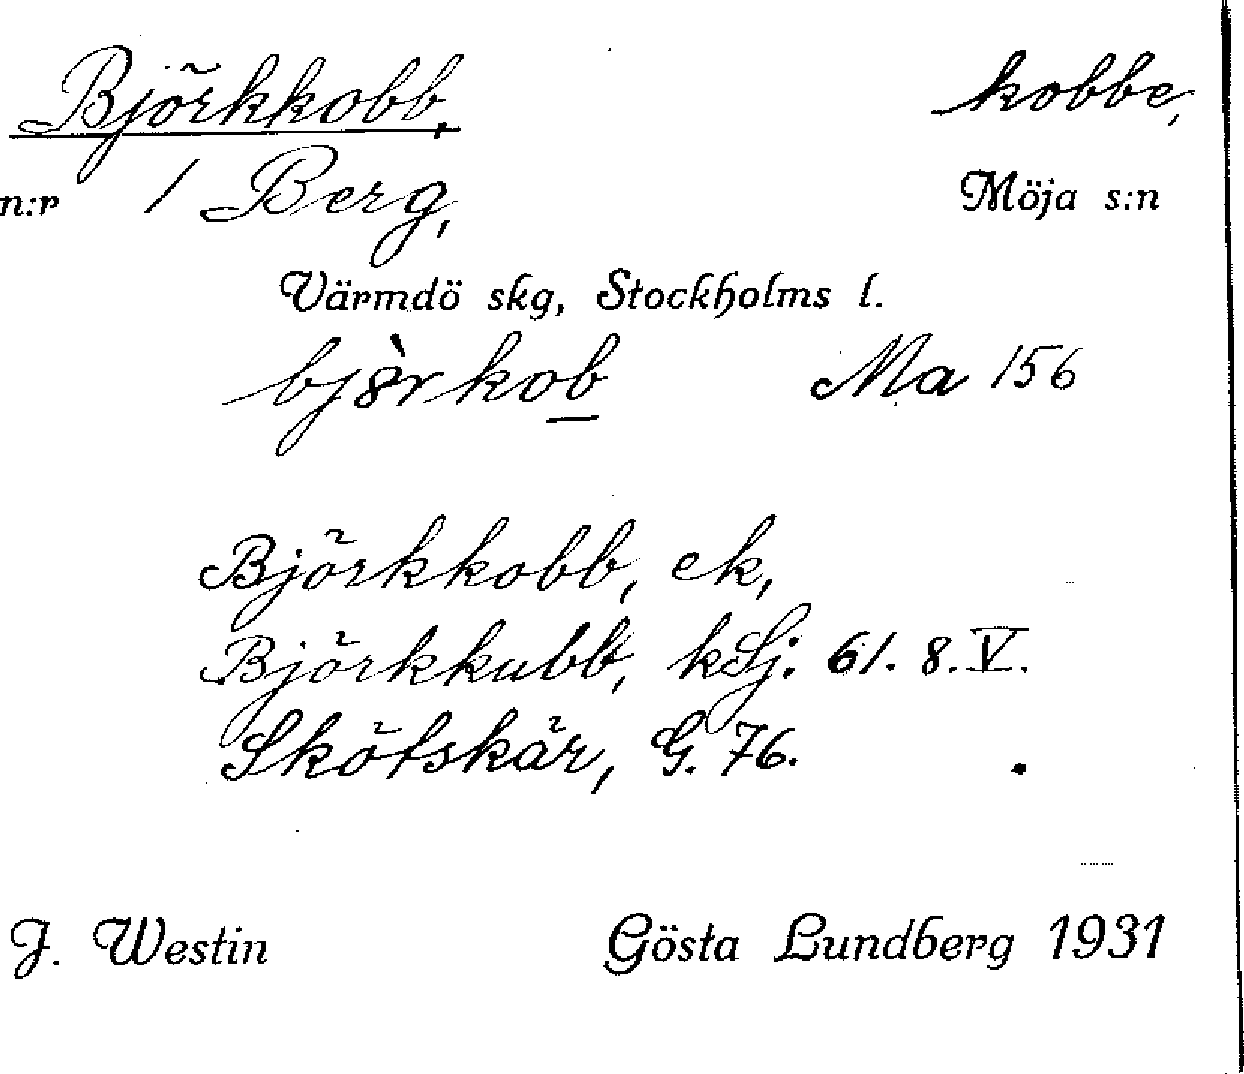 Björkkobb, kobbe,
n:r 1 Berg, Möja s:n
Värmdö skg, Stockholms l.
bjèrkob Ma 156
Björkkobb, ek,
Björkkubb, kSj. 61. 8. V.
Skötskär, G. 76.
J. Westin Gösta Lundberg 1931